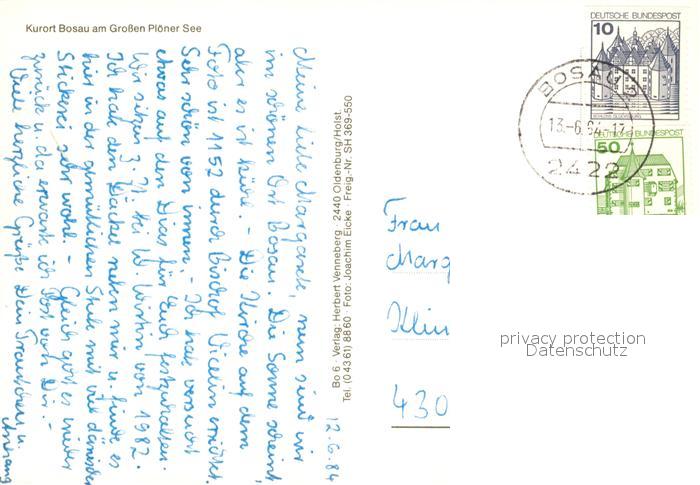 Kurort Bosau am Großen Plöner See
Meine liebe Margaret, nun sind wir
im schönen Ort Bosau. Die Sonne scheint,
aber es ist kühl. - Die Kirche auf dem
Foto ist 1152 durch Bischof Vicelin errichtet.
Sehr schön von innen. - Ich habe versucht
etwas auf den Dias für Euch festzuhalten.
Wir sitzen z. Zt. bei W. Wirtin von 1982.
Ich hab den Dackel neben mir u. finde es
hier in der gemütlichen Stube mit viel dänischer
Stickerei sehr wohl. - Gleich geht es wieder
zurück u. da erwarte ich Post von Dir. -
Viele herzliche Grüße Dein Frauchen u.
Anhang
12.6.84
Bo 6 · Verlag: Herbert Venneberg · 2440 Oldenburg/Holst.
Tel. (0 43 61) 88 60 · Foto: Joachim Eicke · Freig.-Nr. SH 369-550
DEUTSCHE BUNDESPOST
10
SCHLOSS GLÜCKSBURG
BOSAU
13.-6.84-17
2422
DEUTSCHE BUNDESPOST
50
Frau
Marg
Klin
430
privacy protection
Datenschutz